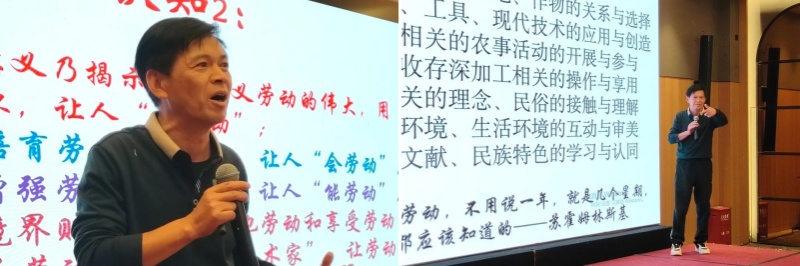 知2：
义乃揭示
义劳动的伟大，用
，让人“
动”；
育劳
让人“会劳动”
强劳
让人“能劳动”
境界则
劳动和享受劳动
术家”，让劳动
、作物的关系与选择
、工具、现代技术的应用与创造
相关的农事活动的开展与参与
收存深加工相关的操作与享用
关的理念、民俗的接触与理解
环境、生活环境的互动与审美
文献、民族特色的学习与认同
劳动，不用说一年，就是几个星期，
都应该知道的——苏霍姆林斯基